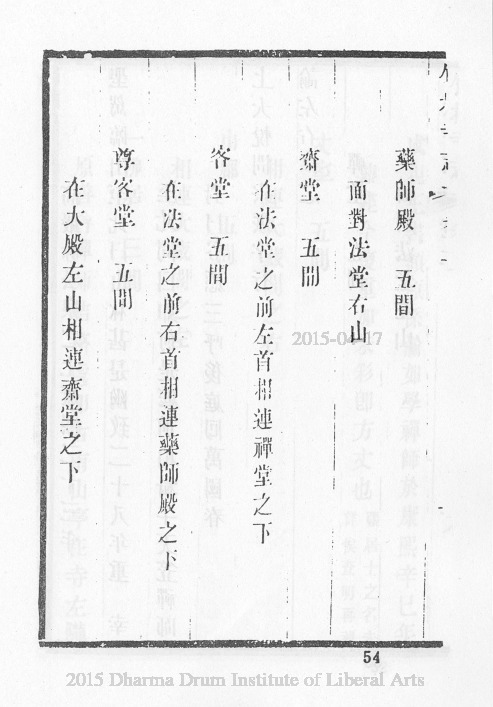 藥師殿 五間
面對法堂右山
齋堂 五間
在法堂之前左首相連禪堂之下
客堂 五間
在法堂之前右首相連藥師殿之下
尊客堂 五間
在大殿左山相連齋堂之下
54
2015-04-17
2015 Dharma Drum Institute of Liberal Arts